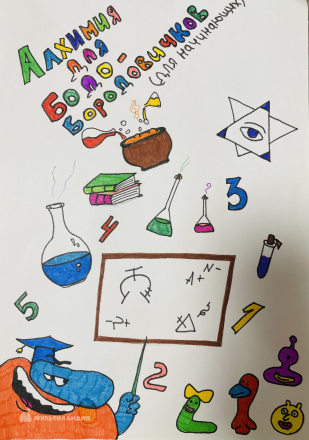 Алхимия
для
Бодо-
Бородовичков
(для начинающих)
3
4
N-
A+
5
1
2
МУЛЬТИЛАНДИЯ